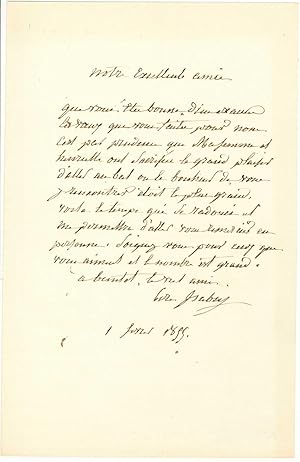 notre Excellente amie
que vous êtes bonne. Dieu exauce
les vœux que vous faites pour nous
c'est par prudence que Ma femme et
ont sacrifié le grand plaisir
d'aller au bal ou le bonheur de vous
y rencontrer étoit le plus grand.
voila le temps qui se radoucit et
me permettra d'aller vous remercier en
personne. Soignez vous pour ceux qui
vous aiment et le nombre est grand.
a bientot. le vieil ami.
Isabey
1 1855.